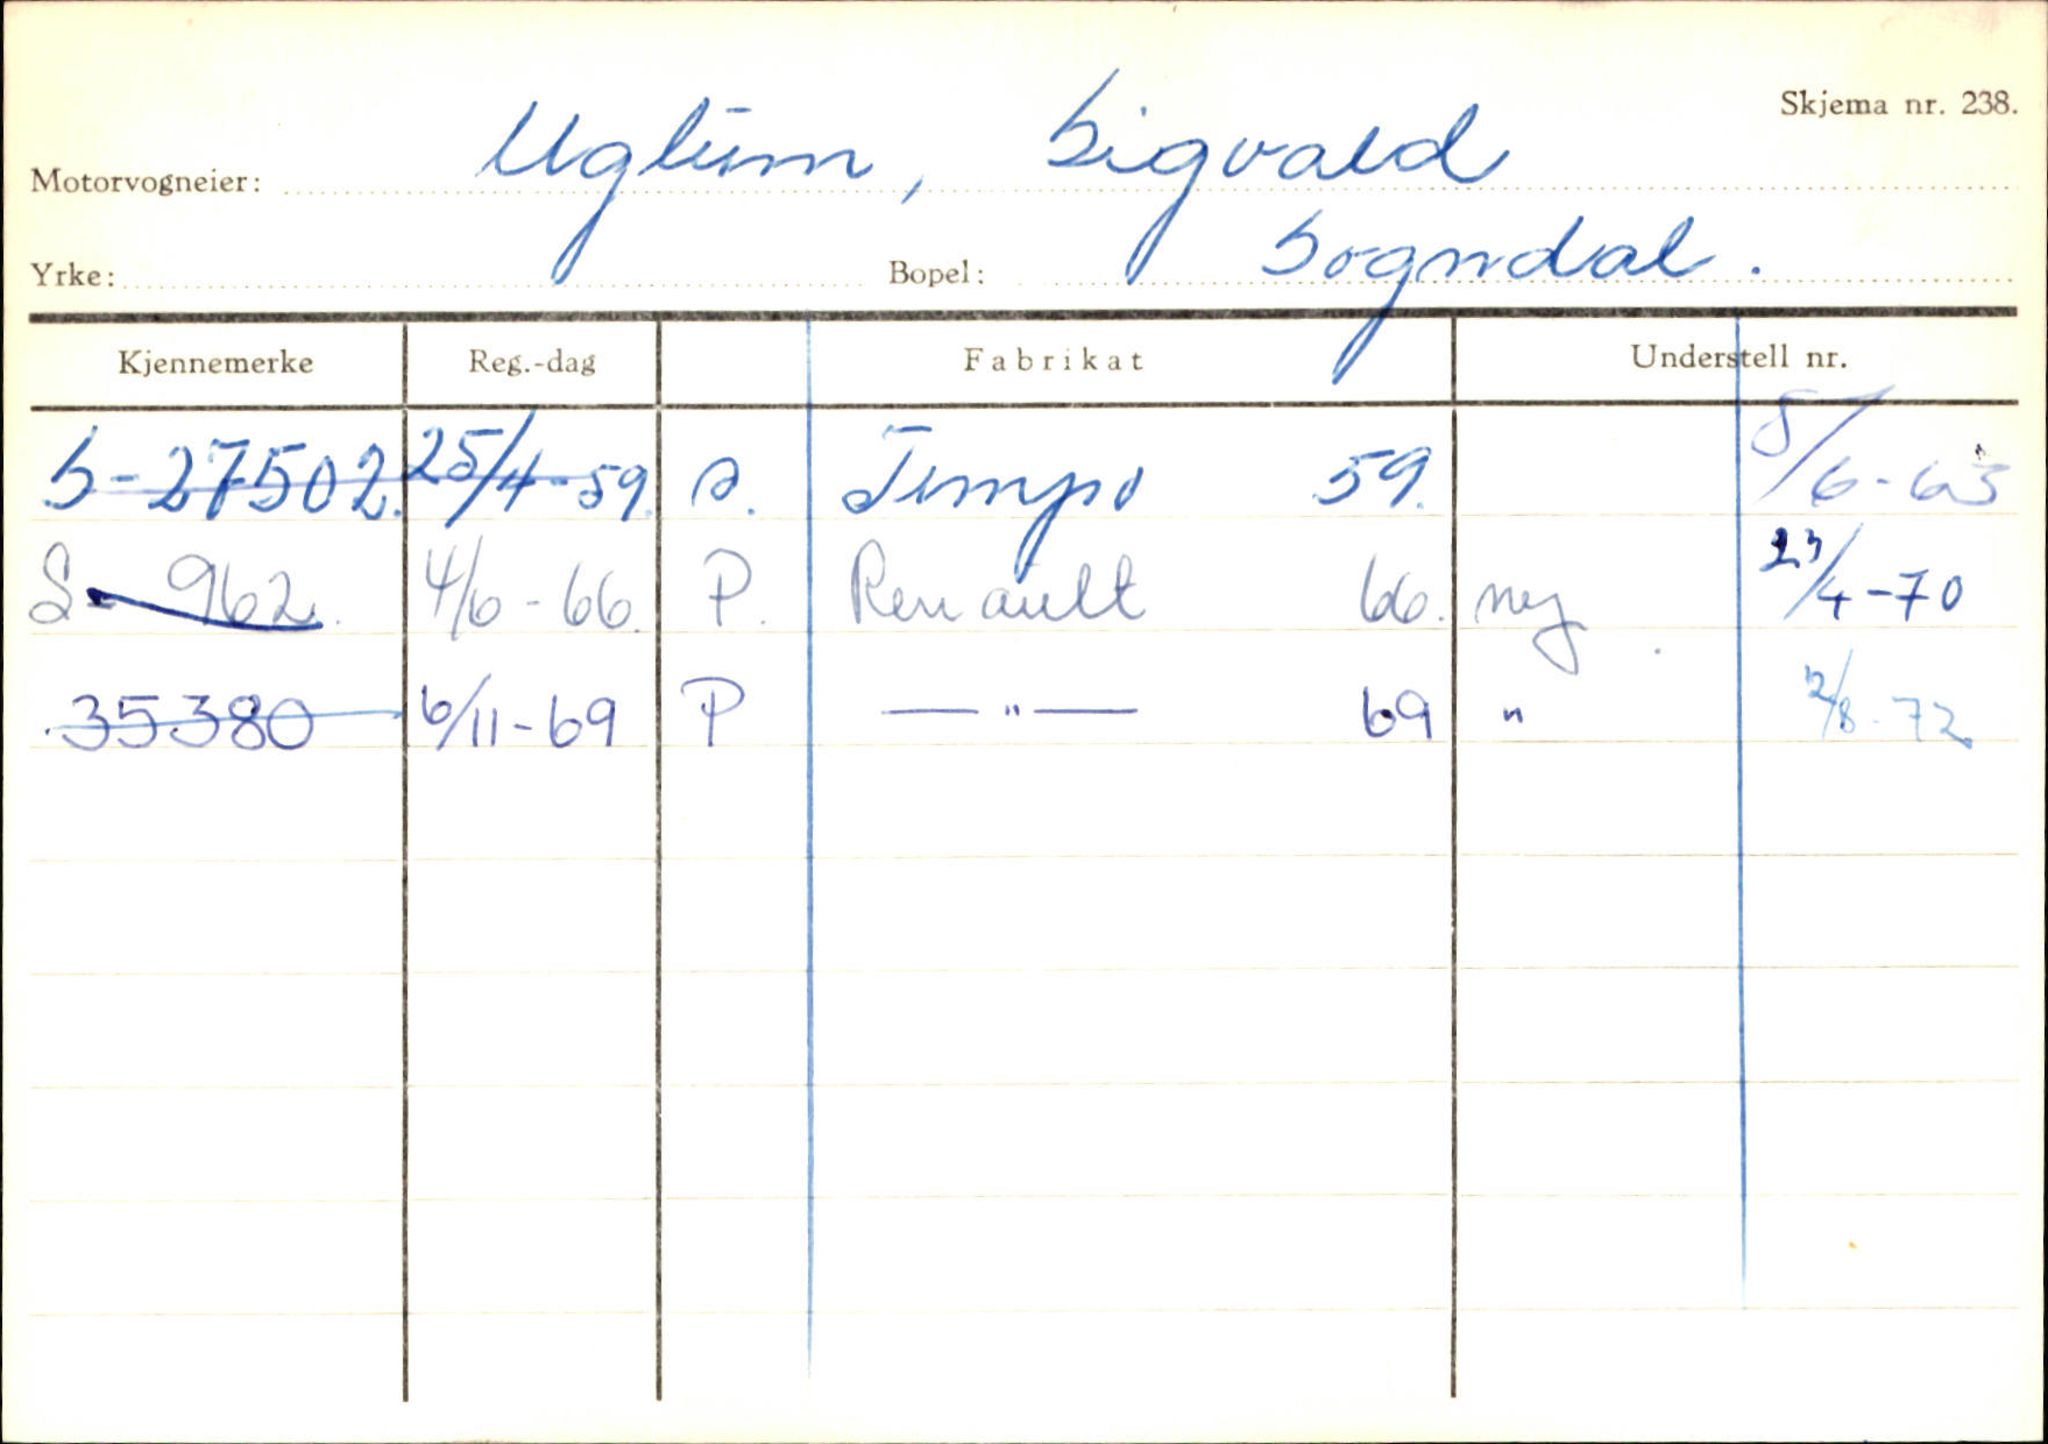 Skjema nr. 238.
Motorvogneier: Uglum, Sigvald
Yrke: Bopel: Sogndal.
Kjennemerke Reg.-dag Fabrikat Understell nr.
S-27502. 25/4-59. s. Tempo 59. 8/6-63
S- 962. 4/6-66. P. Renault 66. ny. 23/4-70
35380 6/11-69 P —"— 69 " 2/8-72